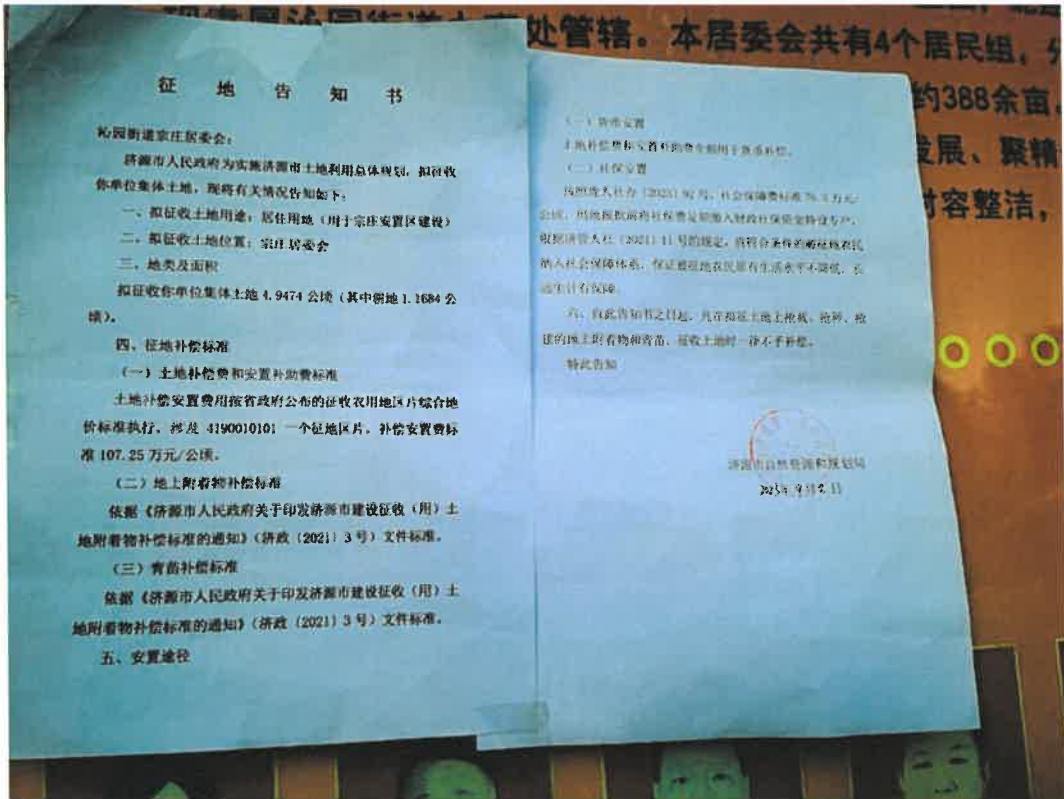 处管辖。本居委会共有4个居民组，
约388余亩
发展、聚精
村容整洁，
征地告知书
沁园街道宗庄居委会：
济源市人民政府为实施济源市土地利用总体规划，拟征收
你单位集体土地，现将有关情况告知如下：
一、拟征收土地用途：居住用地（用于宗庄安置区建设）
二、拟征收土地位置：宗庄居委会
三、地类及面积
拟征收你单位集体土地4.9474公顷（其中耕地1.1684公
顷）。
四、征地补偿标准
（一）土地补偿费和安置补助费标准
土地补偿安置费用按省政府公布的征收农用地区片综合地
价标准执行，涉及4190010101一个征地区片，补偿安置费标
准107.25万元/公顷。
（二）地上附着物补偿标准
依据《济源市人民政府关于印发济源市建设征收（用）土
地附着物补偿标准的通知》（济政〔2021〕3号）文件标准。
（三）青苗补偿标准
依据《济源市人民政府关于印发济源市建设征收（用）土
地附着物补偿标准的通知》（济政〔2021〕3号）文件标准。
五、安置途径
（一）货币安置
土地补偿费和安置补助费全部用于货币补偿。
（二）社保安置
社会保障费标准
公顷，用地报批前将社保费足额缴入财政社保资金特设专户，
〔2021〕11号的规定，将符合条件的被征地农民
纳入社会保障体系，保证被征地农民原有生活水平不降低，长
远生计有保障。
六、自此告知书之日起，凡在拟征土地上抢栽、抢种、抢
建的地上附着物和青苗，征收土地时一律不予补偿。
特此告知
济源市自然资源和规划局
2025年9月 日